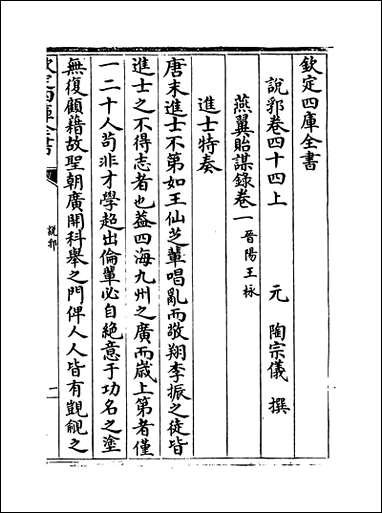 欽定四庫全書
說郛卷四十四上
元 陶宗儀 撰
燕翼貽謀錄卷一 晉陽王栐
進士特奏
唐末進士不第如王仙芝輩唱亂而敬翔李振之徒皆
進士之不得志者也葢四海九州之廣而歲上第者僅
一二十人苟非才學超出倫軰必自絕意于功名之塗
無復顧藉故聖朝廣開科舉之門俾人人皆有覬覦之
欽定四庫全書
說郛